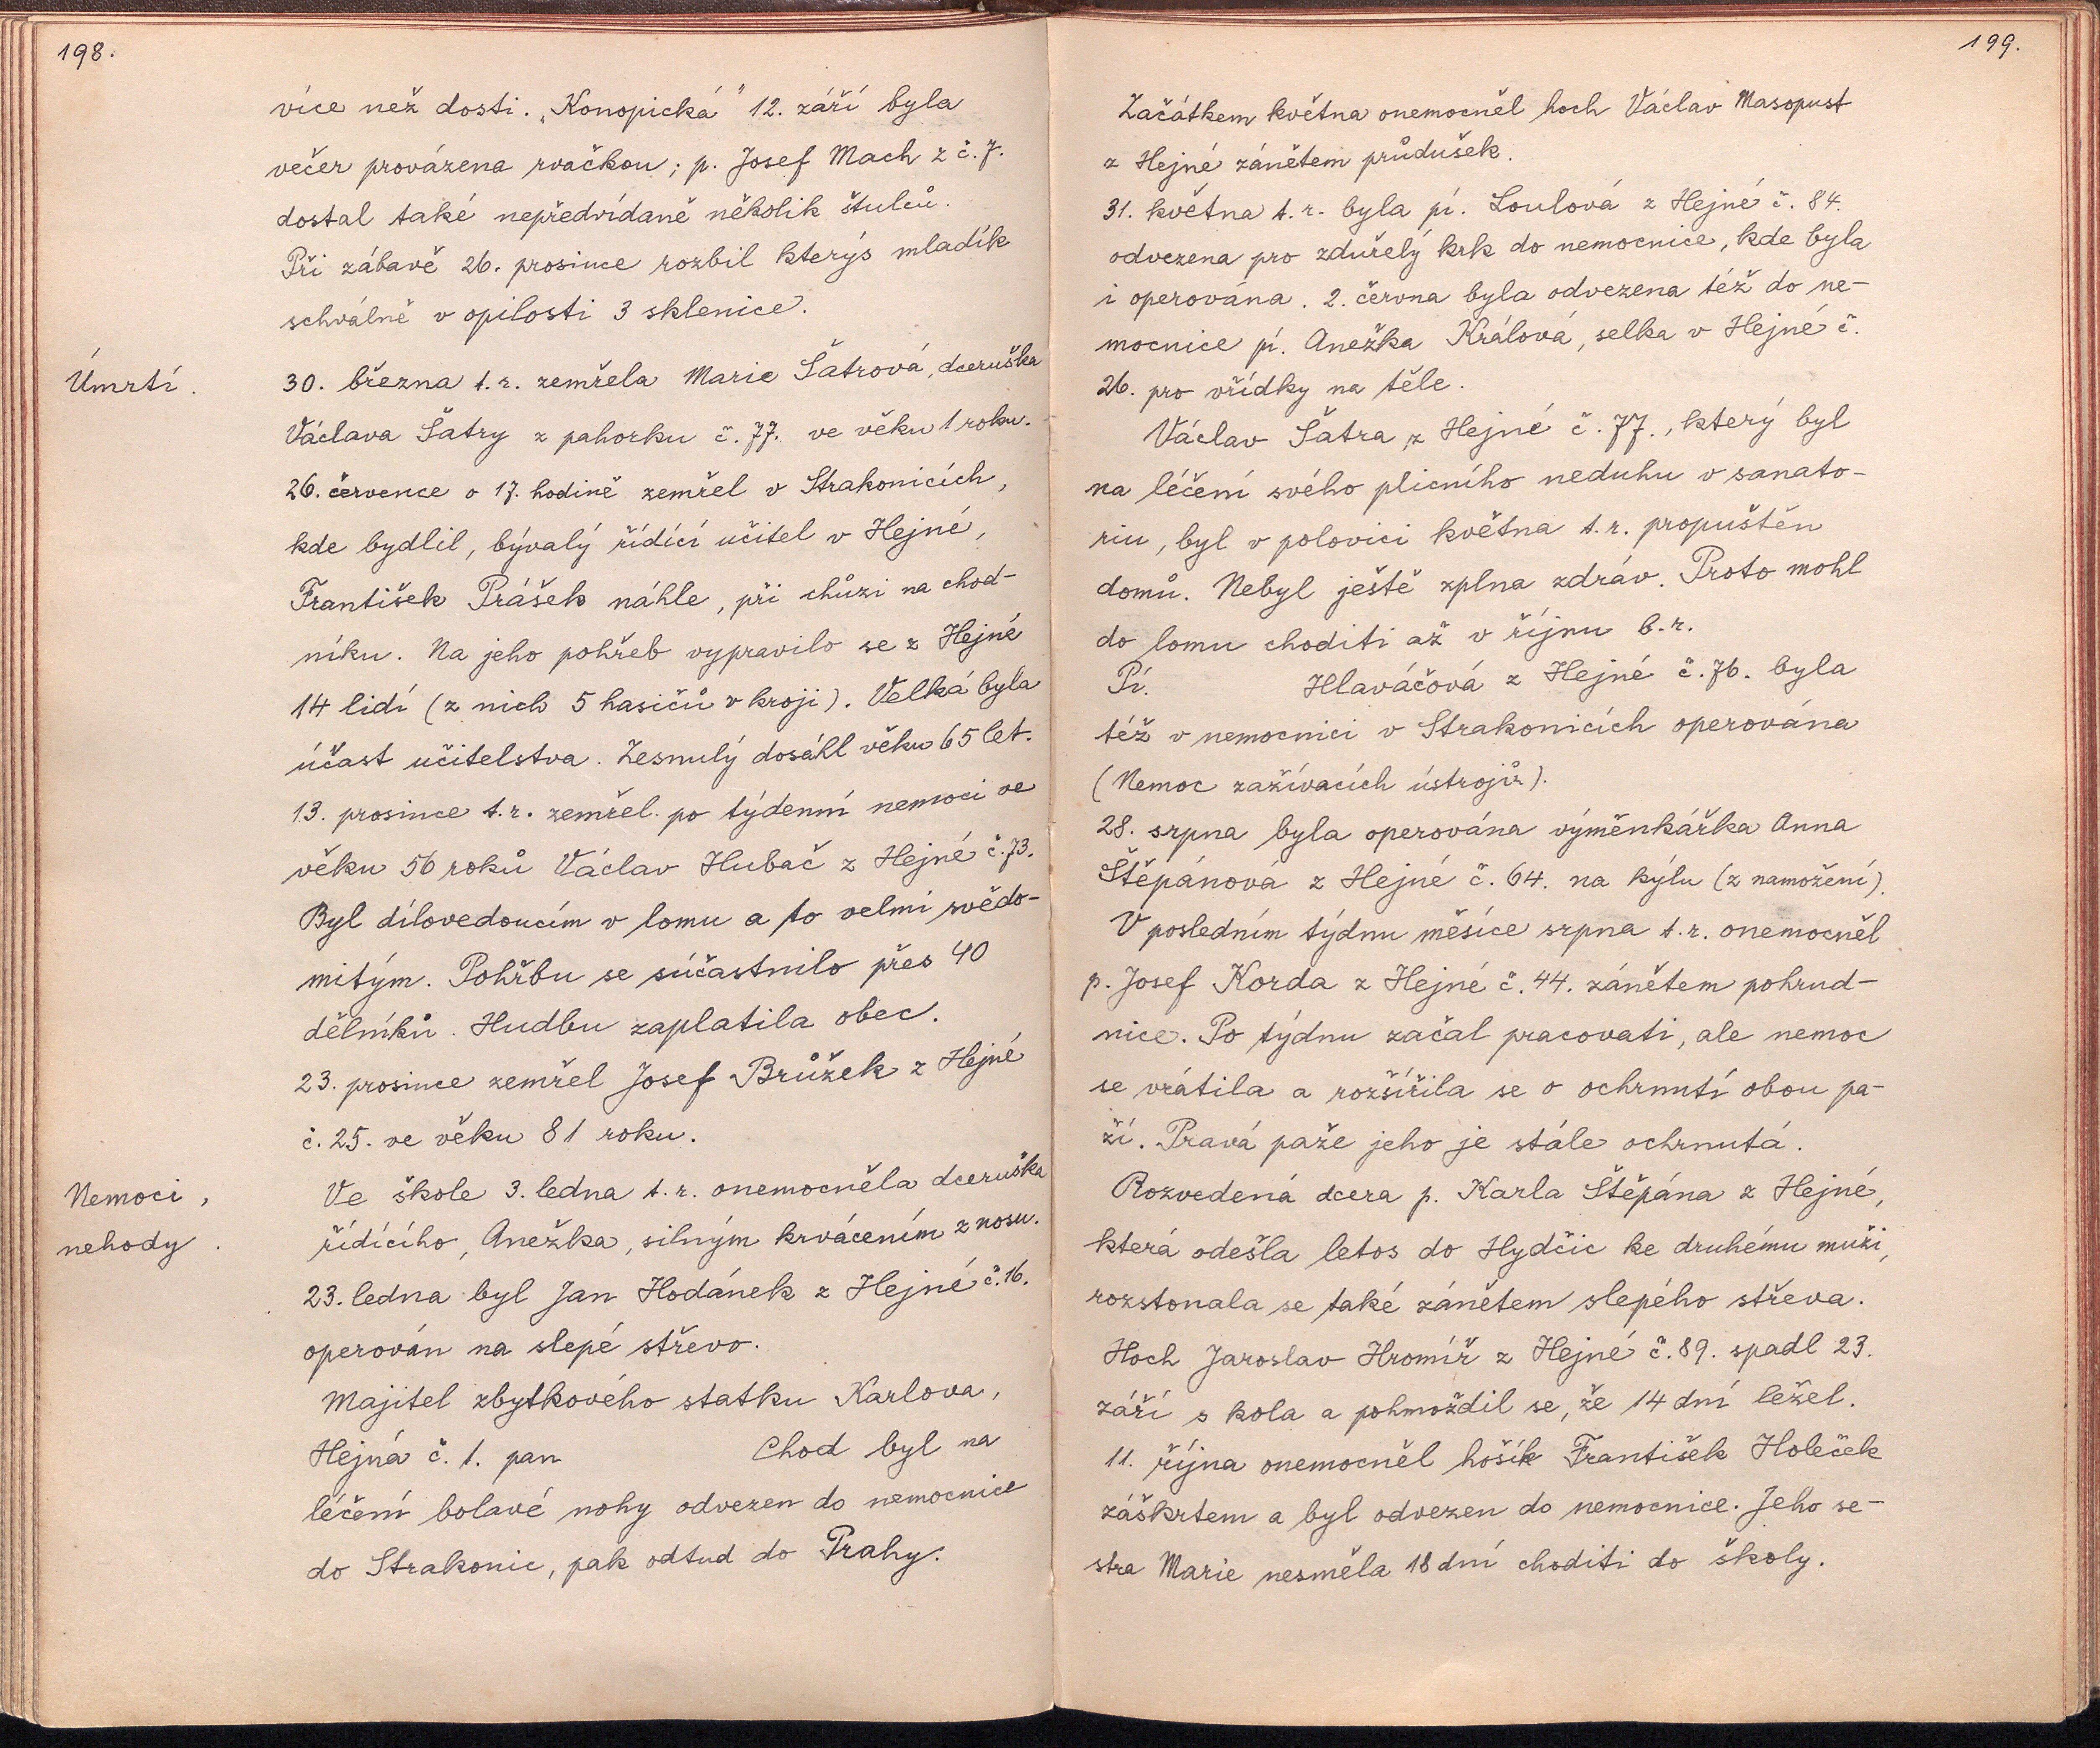 198.
více než dosti. „Konopická" 12. září byla
večer provázena rvačkou; p. Josef Mach z č. 7.
dostal také nepředvídaně několik štulců.
Při zábavě 26. prosince rozbil kterýs mladík
schválně v opilosti 3 sklenice.
Úmrtí.
30. března t. r. zemřela Marie Šatrová, dceruška
Václava Šatry z pahorku č. 77. ve věku 1 roku.
26. července o 17. hodině zemřel v Strakonicích,
kde bydlil, bývalý řídící učitel v Hejné,
František Prášek náhle, při chůzi na chod-
níku. Na jeho pohřeb vypravilo se z Hejné
14 lidí (z nich 5 hasičů v kroji). Velká byla
účast učitelstva. Zesnulý dosáhl věku 65 let.
13. prosince t. r. zemřel po týdenní nemoci ve
věku 56 roků Václav Hubač z Hejné č. 73.
Byl dílovedoucím v lomu a to velmi svědo-
mitým. Pohřbu se súčastnilo přes 40
dělníků. Hudbu zaplatila obec.
23. prosince zemřel Josef Brůžek z Hejné
č. 25. ve věku 81 roku.
Nemoci,
nehody.
Ve škole 3. ledna t. r. onemocněla dceruška
řídícího, Anežka, silným krvácením z nosu.
23. ledna byl Jan Hodánek z Hejné č. 16.
operován na slepé střevo.
Majitel zbytkového statku Karlova,
Hejná č. 1. pan Chod byl na
léčení bolavé nohy odvezen do nemocnice
do Strakonic, pak odtud do Prahy.
199.
Začátkem května onemocněl hoch Václav Masopust
z Hejné zánětem průdušek.
31. května t. r. byla pí. Loulová z Hejné č. 84.
odvezena pro zduřelý krk do nemocnice, kde byla
i operována. 2. června byla odvezena též do ne-
mocnice pí. Anežka Králová, selka v Hejné č.
26. pro vřídky na těle.
Václav Šatra z Hejné č. 77., který byl
na léčení svého plicního neduhu v sanato-
riu, byl v polovici května t. r. propuštěn
domů. Nebyl ještě zplna zdráv. Proto mohl
do lomu choditi až v říjnu b. r.
Pí. Hlaváčová z Hejné č. 76. byla
též v nemocnici v Strakonicích operována
(Nemoc zažívacích ústrojů).
28. srpna byla operována výměnkářka Anna
Štěpánová z Hejné č. 64. na kýlu (z namožení).
V posledním týdnu měsíce srpna t. r. onemocněl
p. Josef Korda z Hejné č. 44. zánětem pohrud-
nice. Po týdnu začal pracovati, ale nemoc
se vrátila a rozšířila se o ochrnutí obou pa-
ží. Pravá paže jeho je stále ochrnutá.
Rozvedená dcera p. Karla Štěpána z Hejné,
která odešla letos do Hydčic ke druhému muži,
rozstonala se také zánětem slepého střeva.
Hoch Jaroslav Hromíř z Hejné č. 89. spadl 23.
září s kola a pohmoždil se, že 14 dní ležel.
11. října onemocněl hošík František Holeček
záškrtem a byl odvezen do nemocnice. Jeho se-
stra Marie nesměla 18 dní choditi do školy.